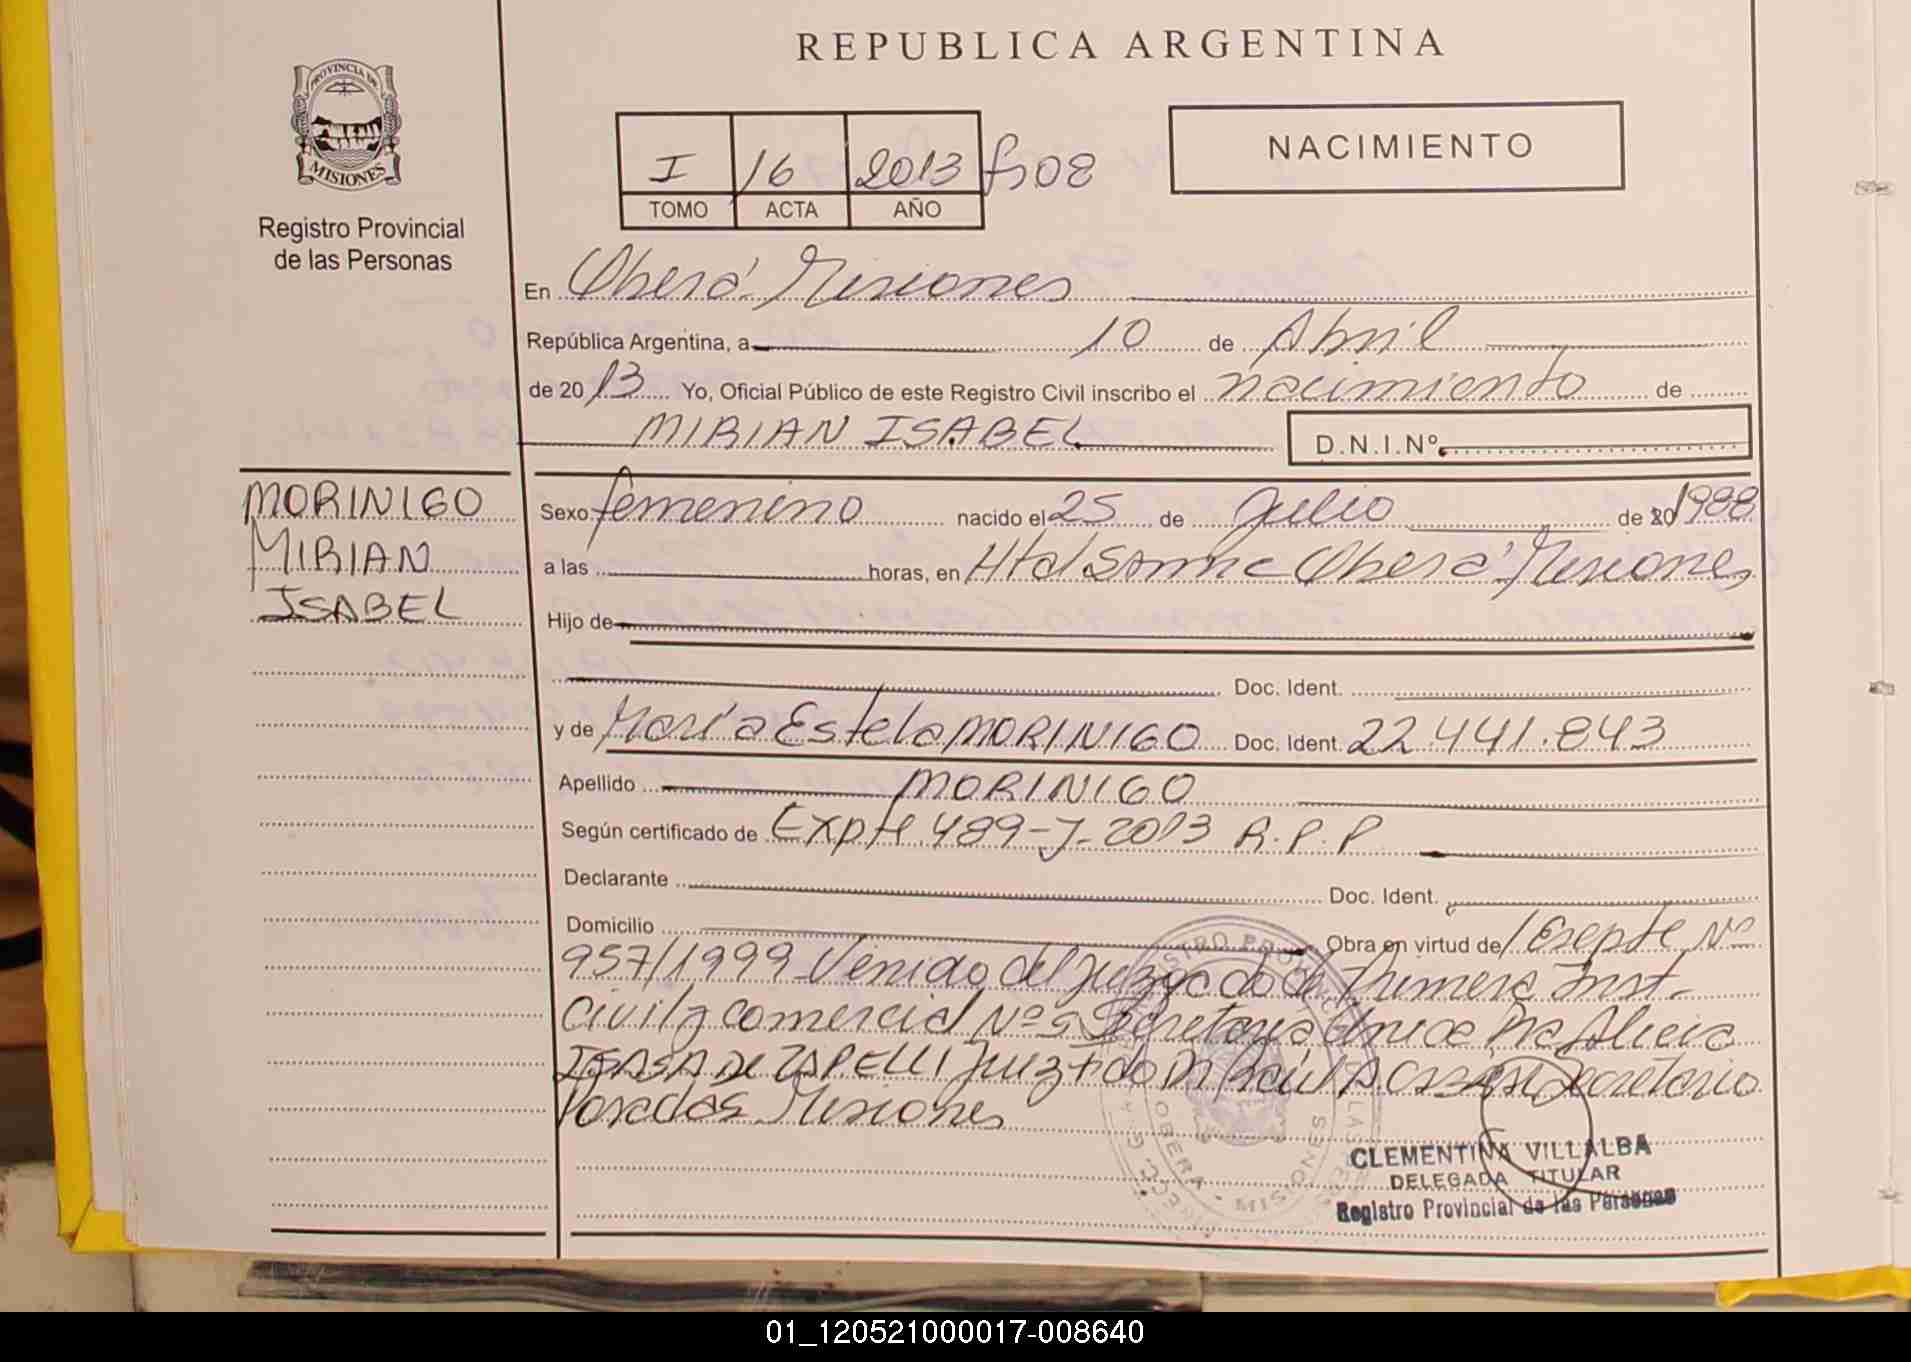 REPUBLICA ARGENTINA
PROVINCIA DE
MISIONES
Registro Provincial
de las Personas
NACIMIENTO
I 16 2013 fº 08
TOMO ACTA AÑO
En Oberá Misiones
República Argentina, a 10 de Abril
de 20 13 Yo, Oficial Público de este Registro Civil inscribo el nacimiento de
MIRIAN ISABEL D.N.I.Nº
MORINIGO
MIRIAN
ISABEL
Sexo femenino nacido el 25 de Julio de 20 1988
a las horas, en Htal Oberá Misiones
Hijo de
Doc. Ident.
y de María Estela MORINIGO Doc. Ident. 22.441.843
Apellido MORINIGO
Según certificado de Expte. 489-J-2013 R.P.P
Declarante Doc. Ident.
Domicilio Obra en virtud de Nº
957/1999 Venido del Juzgado de Primera Inst.
Civil y comercial Nº 5 Secretaria Unica Dra Alicia
DE ZAPELLI Juez Raúl A. Secretario
Posadas Misiones
OBERA - MISIONES
CLEMENTINA VILLALBA
DELEGADA TITULAR
Registro Provincial de las Personas
01_120521000017-008640